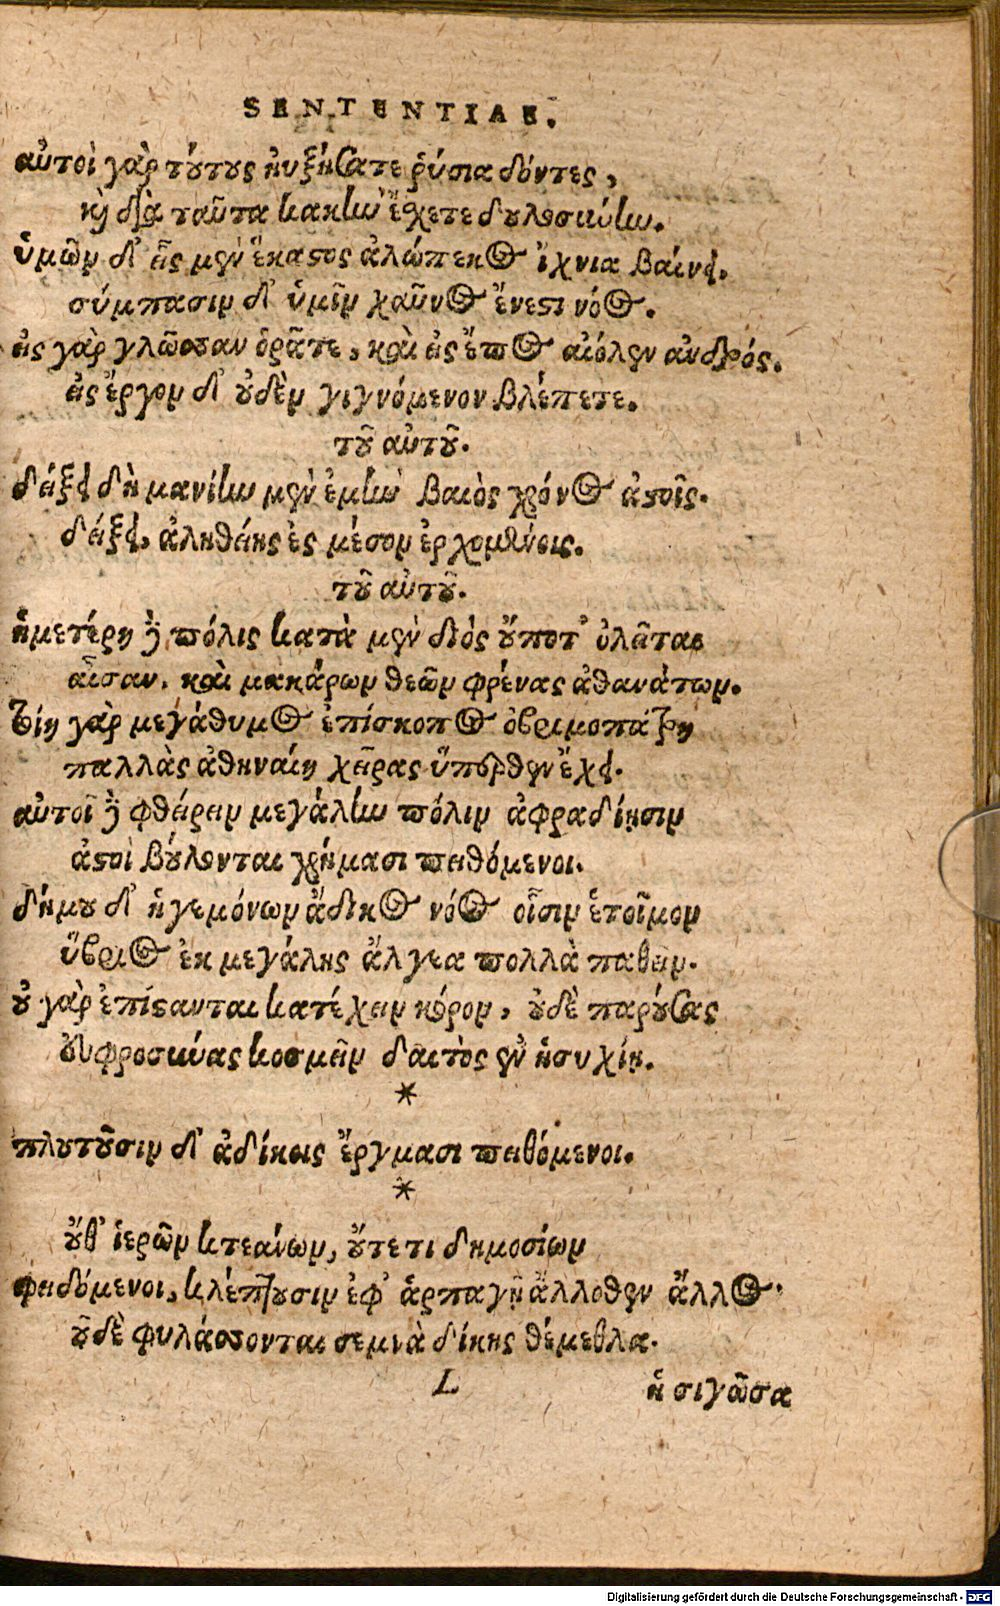 SENTENTIAE.
αὐτοὶ γὰρ τούτους ηὐξήσατε ῥύσια δόντες,
καὶ διὰ ταῦτα κακὴν ἔχετε δουλοσύνην.
ὑμῶν δ' εἷς μὲν ἕκαστος ἀλώπεκος ἴχνια βαίνει.
σύμπασιν δ' ὑμῖν χαῦνος ἔνεστι νόος.
εἰς γὰρ γλῶσσαν ὁρᾶτε, καὶ εἰς ἔπος αἰόλον ἀνδρός.
εἰς ἔργον δ' οὐδὲν γιγνόμενον βλέπετε.
τοῦ αὐτοῦ.
δείξει δὴ μανίην μὲν ἐμὴν βαιὸς χρόνος ἀστοῖς.
δείξει, ἀληθείης ἐς μέσον ἐρχομένοις.
τοῦ αὐτοῦ.
ἡμετέρη δὲ πόλις κατὰ μὲν διὸς οὔποτ' ὀλεῖται
αἶσαν, καὶ μακάρων θεῶν φρένας ἀθανάτων.
τοίη γὰρ μεγάθυμος ἐπίσκοπος ὀβριμοπάτρη
παλλὰς ἀθηναίη χεῖρας ὕπερθεν ἔχει.
αὐτοὶ δὲ φθείρειν μεγάλην πόλιν ἀφραδίῃσιν
ἀστοὶ βούλονται χρήμασι πειθόμενοι.
δήμου δ' ἡγεμόνων ἄδικος νόος οἷσιν ἑτοῖμον
ὕβριος ἐκ μεγάλης ἄλγεα πολλὰ παθεῖν.
οὐ γὰρ ἐπίστανται κατέχειν κόρον, οὐδὲ παρούσας
εὐφροσύνας κοσμεῖν δαιτὸς ἐν ἡσυχίῃ.
*
πλουτοῦσιν δ' ἀδίκοις ἔργμασι πειθόμενοι.
*
οὔθ' ἱερῶν κτεάνων, οὔτε τι δημοσίων
φειδόμενοι, κλέπτουσιν ἐφ' ἁρπαγῇ ἄλλοθεν ἄλλος.
οὐδὲ φυλάσσονται σεμνὰ δίκης θέμεθλα.
L ἣ σιγῶσα
Digitalisierung gefördert durch die Deutsche Forschungsgemeinschaft - DFG